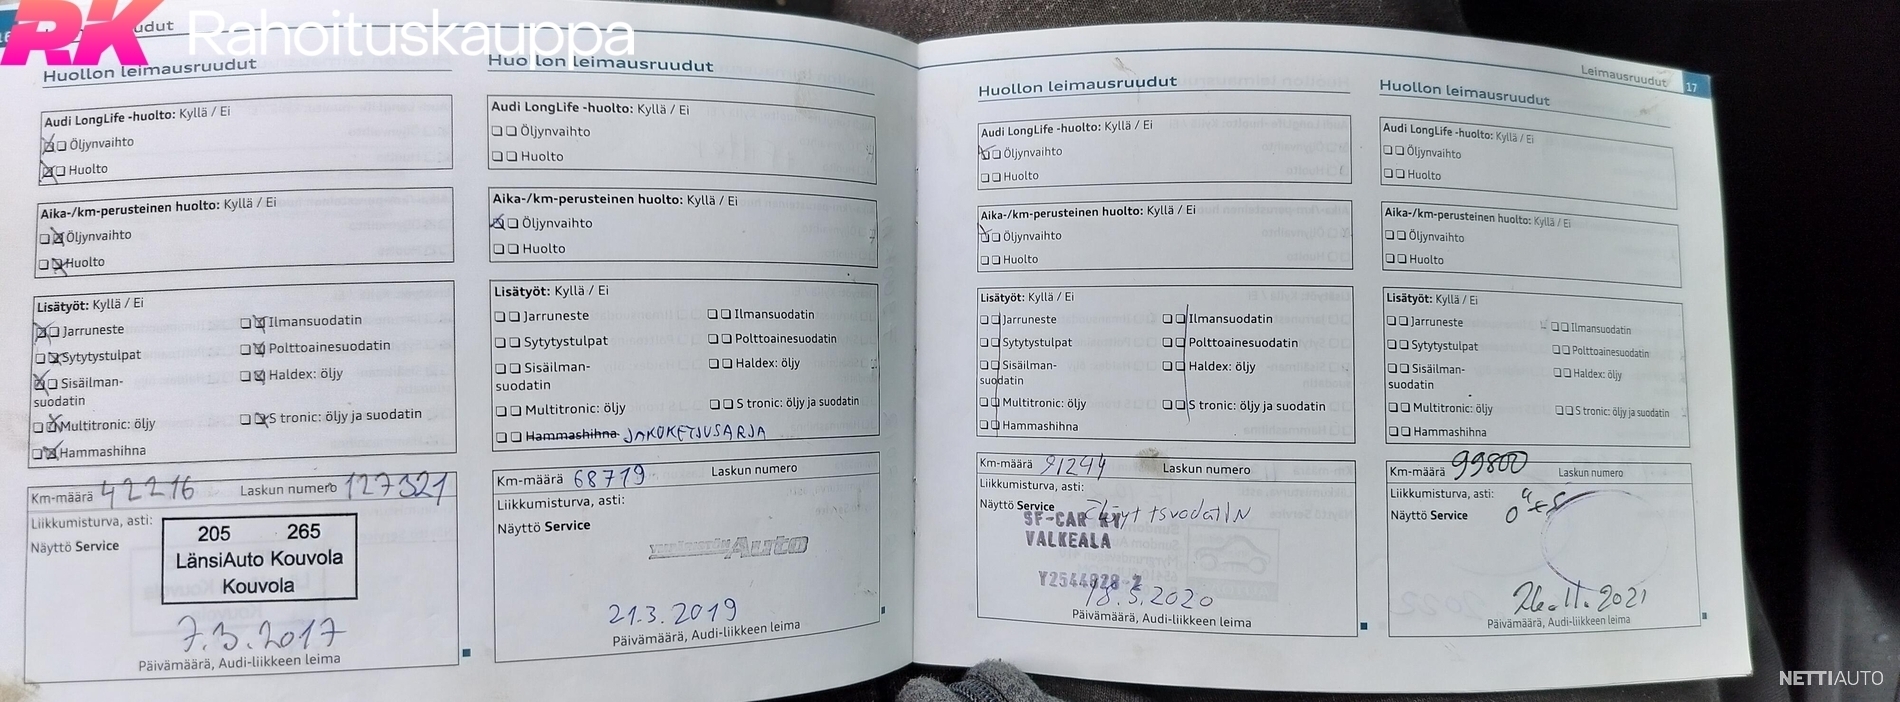 RK Rahoituskauppa
Huollon leimausruudut
Audi LongLife -huolto: Kyllä / Ei
Öljynvaihto
Huolto
Aika-/km-perusteinen huolto: Kyllä / Ei
Öljynvaihto
Huolto
Lisätyöt: Kyllä / Ei
Jarruneste
Ilmansuodatin
Sytytystulpat
Polttoainesuodatin
Sisäilman-
suodatin
Haldex: öljy
Multitronic: öljy
S tronic: öljy ja suodatin
Hammashihna
Km-määrä 42216 Laskun numero 127321
Liikkumisturva, asti:
Näyttö Service
205 265
LänsiAuto Kouvola
Kouvola
7.3.2017
Päivämäärä, Audi-liikkeen leima
Huollon leimausruudut
Audi LongLife -huolto: Kyllä / Ei
Öljynvaihto
Huolto
Aika-/km-perusteinen huolto: Kyllä / Ei
Öljynvaihto
Huolto
Lisätyöt: Kyllä / Ei
Jarruneste
Ilmansuodatin
Sytytystulpat
Polttoainesuodatin
Sisäilman-
suodatin
Haldex: öljy
Multitronic: öljy
S tronic: öljy ja suodatin
Hammashihna JAKOKETJUSARJA
Km-määrä 68719 Laskun numero
Liikkumisturva, asti:
Näyttö Service
Auto
21.3.2019
Päivämäärä, Audi-liikkeen leima
Huollon leimausruudut
Audi LongLife -huolto: Kyllä / Ei
Öljynvaihto
Huolto
Aika-/km-perusteinen huolto: Kyllä / Ei
Öljynvaihto
Huolto
Lisätyöt: Kyllä / Ei
Jarruneste
Ilmansuodatin
Sytytystulpat
Polttoainesuodatin
Sisäilman-
suodatin
Haldex: öljy
Multitronic: öljy
S tronic: öljy ja suodatin
Hammashihna
Km-määrä 91244 Laskun numero
Liikkumisturva, asti:
Näyttö Service
SF-CAR KY
VALKEALA
Y2544028-2
18.5.2020
Päivämäärä, Audi-liikkeen leima
Leimausruudut 17
Huollon leimausruudut
Audi LongLife -huolto: Kyllä / Ei
Öljynvaihto
Huolto
Aika-/km-perusteinen huolto: Kyllä / Ei
Öljynvaihto
Huolto
Lisätyöt: Kyllä / Ei
Jarruneste
Ilmansuodatin
Sytytystulpat
Polttoainesuodatin
Sisäilman-
suodatin
Haldex: öljy
Multitronic: öljy
S tronic: öljy ja suodatin
Hammashihna
Km-määrä 99800 Laskun numero
Liikkumisturva, asti:
Näyttö Service
26.11.2021
Päivämäärä, Audi-liikkeen leima
NETTIAUTO